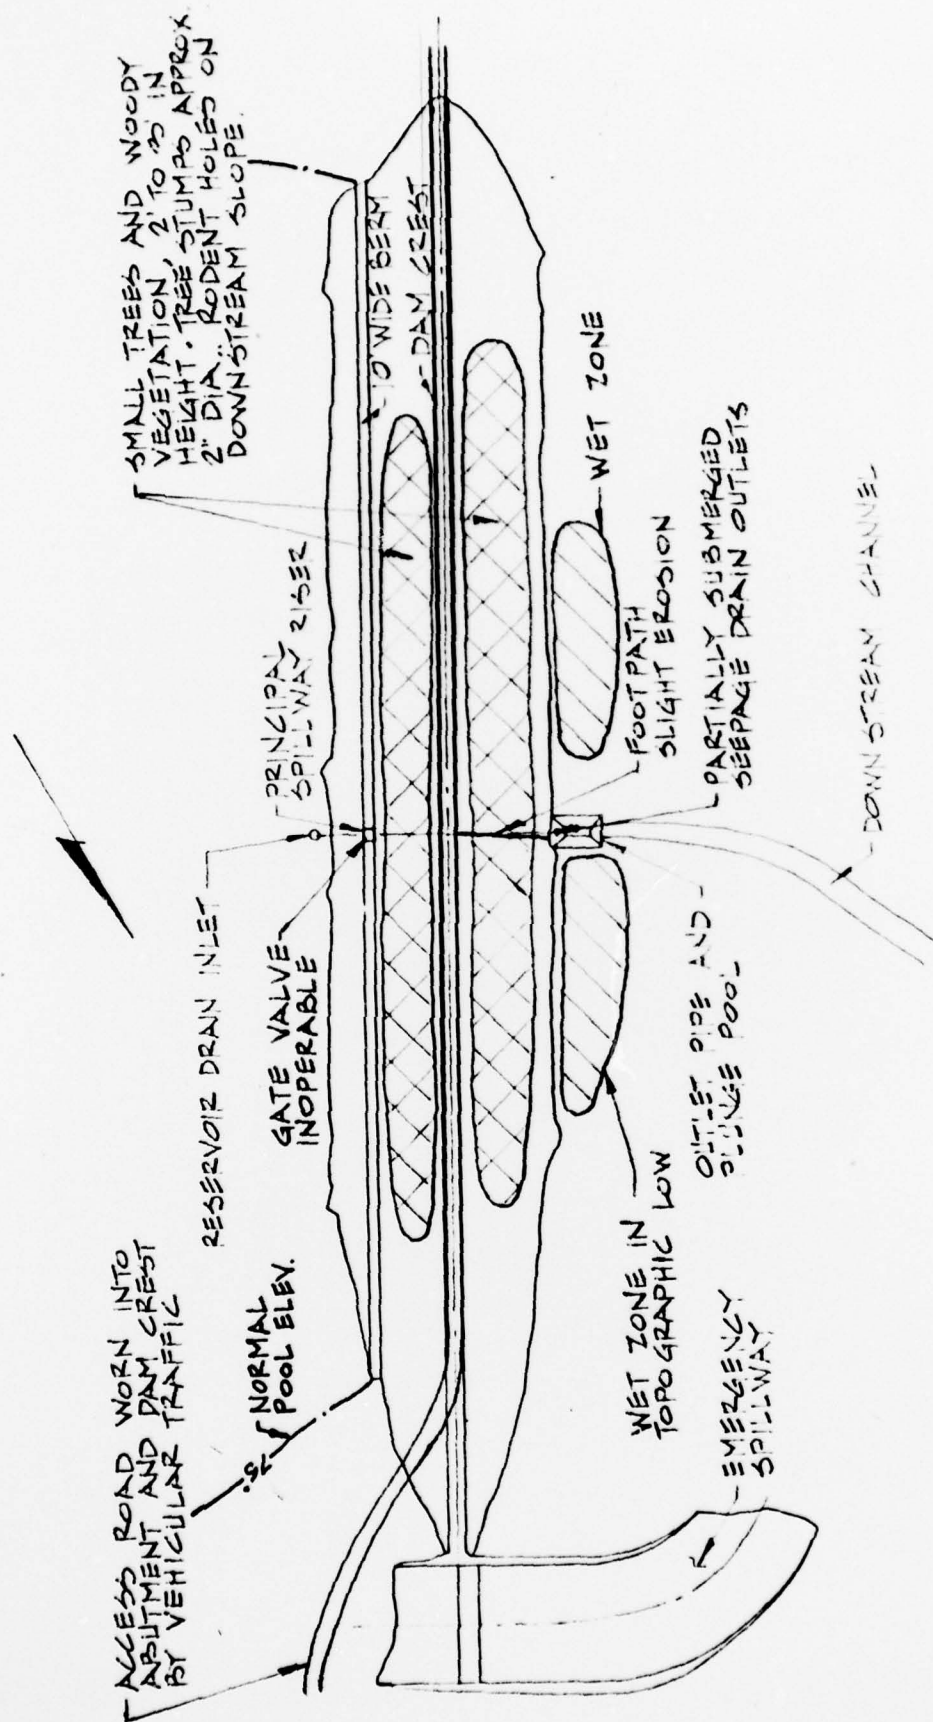 ACCESS ROAD WORN INTO
ABUTMENT AND DAM CREST
BY VEHICULAR TRAFFIC
NORMAL
POOL ELEV.
RESERVOIR DRAIN INLET
GATE VALVE
INOPERABLE
PRINCIPAL
SPILLWAY RISER
SMALL TREES AND WOODY
VEGETATION, 2' TO 3' IN
HEIGHT. TREE STUMPS APPROX.
2" DIA.. RODENT HOLES ON
DOWNSTREAM SLOPE.
10' WIDE BERM
DAM CREST
WET ZONE
FOOTPATH
SLIGHT EROSION
PARTIALLY SUBMERGED
SEEPAGE DRAIN OUTLETS
DOWNSTREAM CHANNEL
OUTLET PIPE AND
PLUNGE POOL
WET ZONE IN
TOPOGRAPHIC LOW
EMERGENCY
SPILLWAY